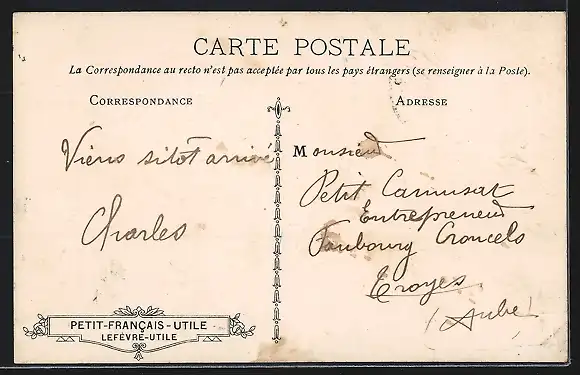 CARTE POSTALE
La Correspondance au recto n'est pas acceptée par tous les pays étrangers (se renseigner à la Poste).
CORRESPONDANCE
Viens sitôt arrivé
Charles
PETIT-FRANÇAIS-UTILE
LEFÈVRE-UTILE
ADRESSE
Monsieur
Petit Camusat
Entrepreneur
Faubourg Croncels
Troyes
(Aube)